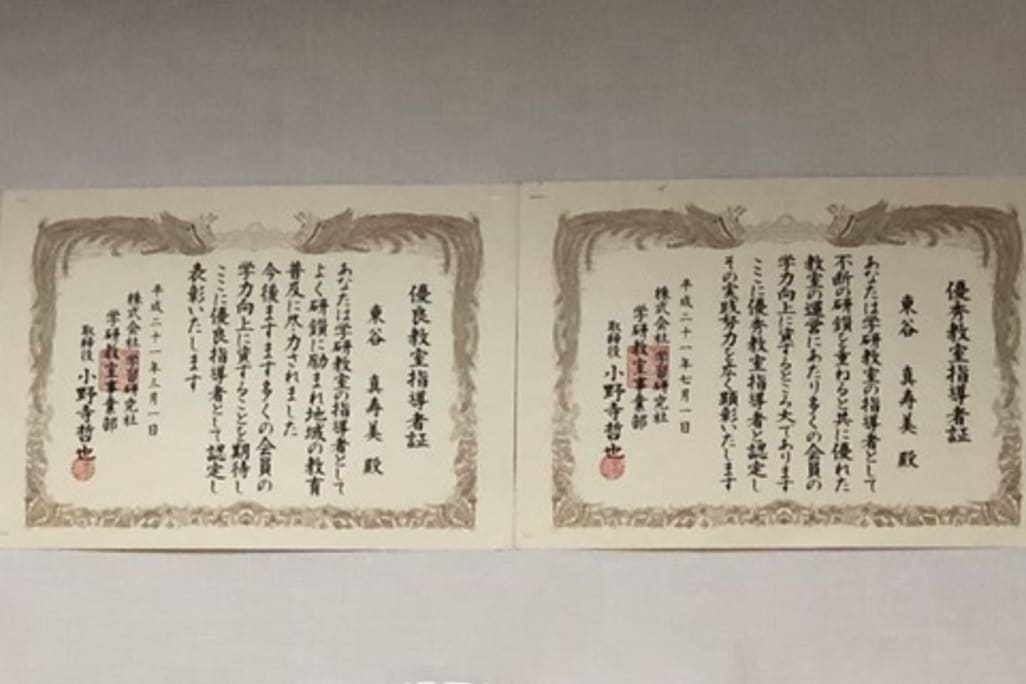 優秀教室指導者証
東谷 真寿美 殿
あなたは学研教室の指導者として
不断の研鑽を重ねると共に優れた
教室の運営にあたり多くの会員の
学力向上に資するところ大であります
ここに優秀教室指導者と認定し
その実践努力を広く顕彰いたします
平成二十一年七月一日
株式会社 学習研究社
学研教室事業部
取締役 小野寺哲也
優良教室指導者証
東谷 真寿美 殿
あなたは学研教室の指導者として
よく研鑽に励まれ地域の教育
普及に尽力されました
今後ますます多くの会員の
学力向上に資することを期待し
ここに優良指導者として認定し
表彰いたします
平成二十一年三月一日
株式会社 学習研究社
学研教室事業部
取締役 小野寺哲也